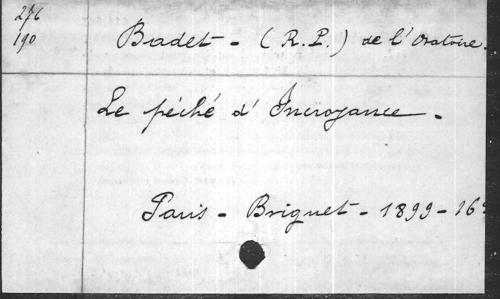 276
190
Badet - (R.P.) de l'Oratoire.
Le péché d'Incroyance.
Paris - Briguet - 1899 - 16°